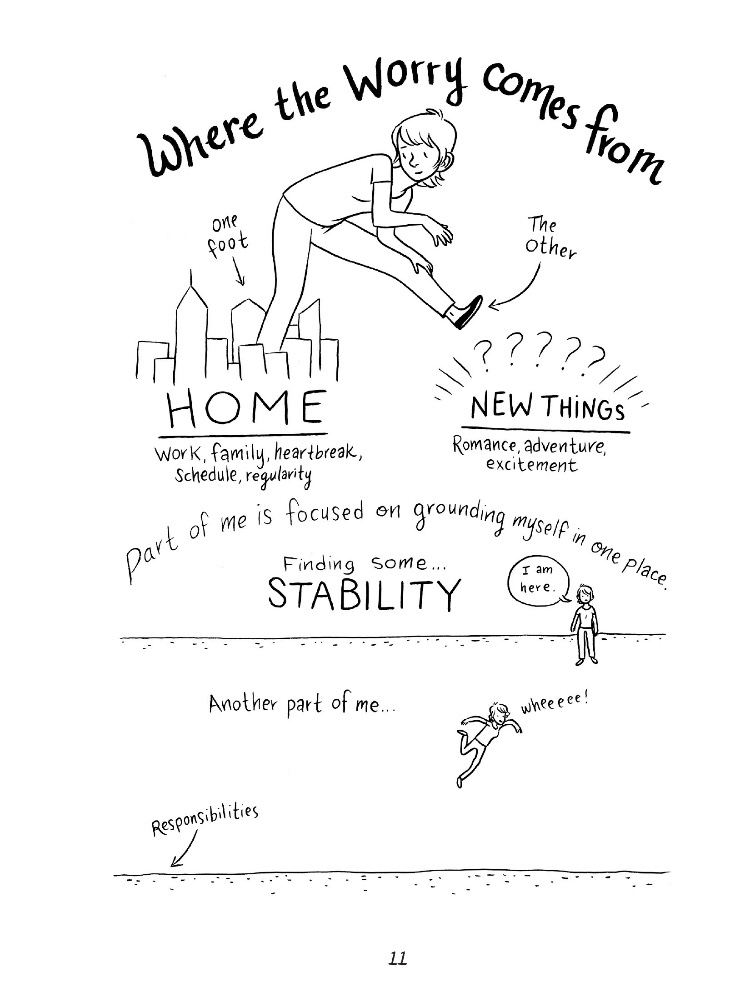 Where the Worry comes from
one
foot
The
Other
? ? ? ? ?
HOME
Work, family, heartbreak,
Schedule, regularity
NEW THINGS
Romance, adventure,
excitement
Part of me is focused on grounding myself in one place.
Finding some...
STABILITY
I am
here.
Another part of me...
wheeeee!
Responsibilities
11